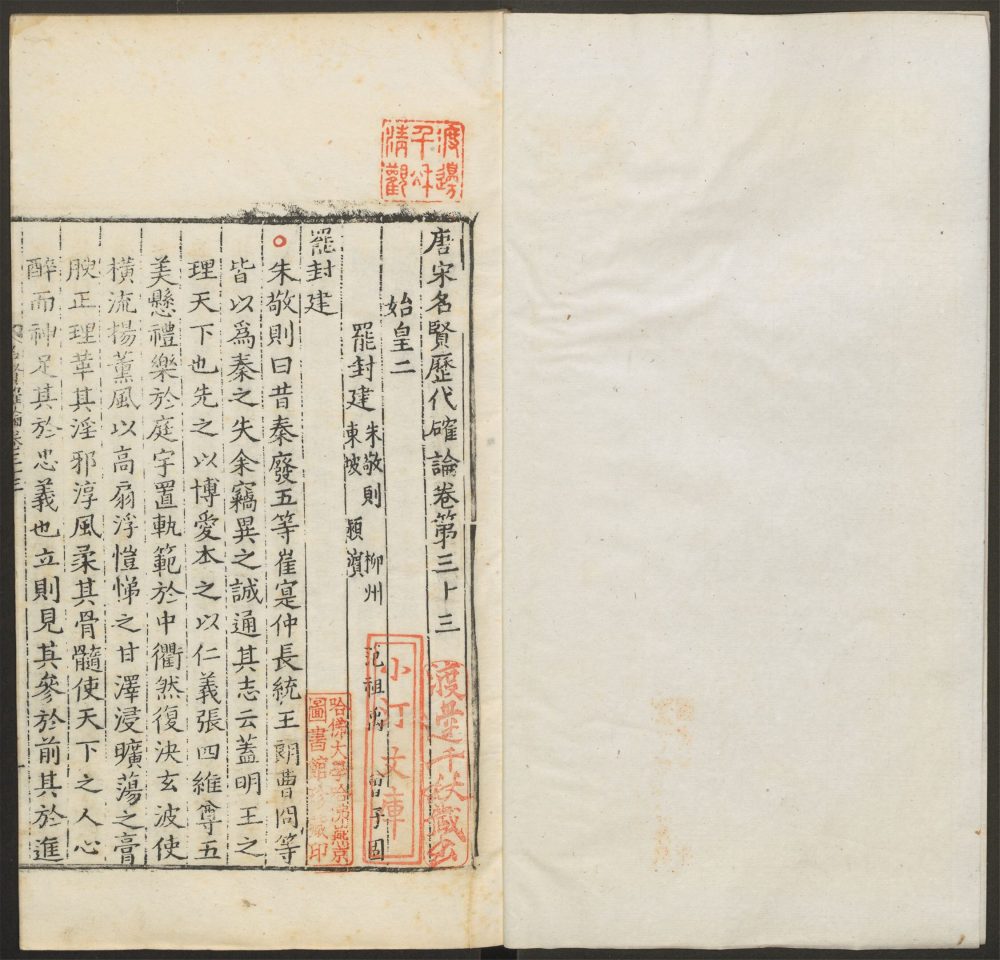 唐宋名賢歷代確論卷第三十三
始皇二
罷封建 朱敬則 柳州 范祖禹 曾子固
東坡 潁濱
罷封建
朱敬則曰昔秦廢五等崔寔仲長統王朗曹冏等
皆以爲秦之失余竊異之誠通其志云蓋明王之
理天下也先之以博愛本之以仁義張四維尊五
美懸禮樂於庭宇置軌範於中衢然復決玄波使
橫流揚薰風以高扇浮愷悌之甘澤浸曠蕩之膏
腴正理革其淫邪淳風柔其骨髓使天下之人心
醉而神足其於忠義也立則見其參於前其於進
渡邊千秋清觀
渡邊千秋藏書
小汀文庫
哈佛大學哈佛燕京
圖書館珍藏印